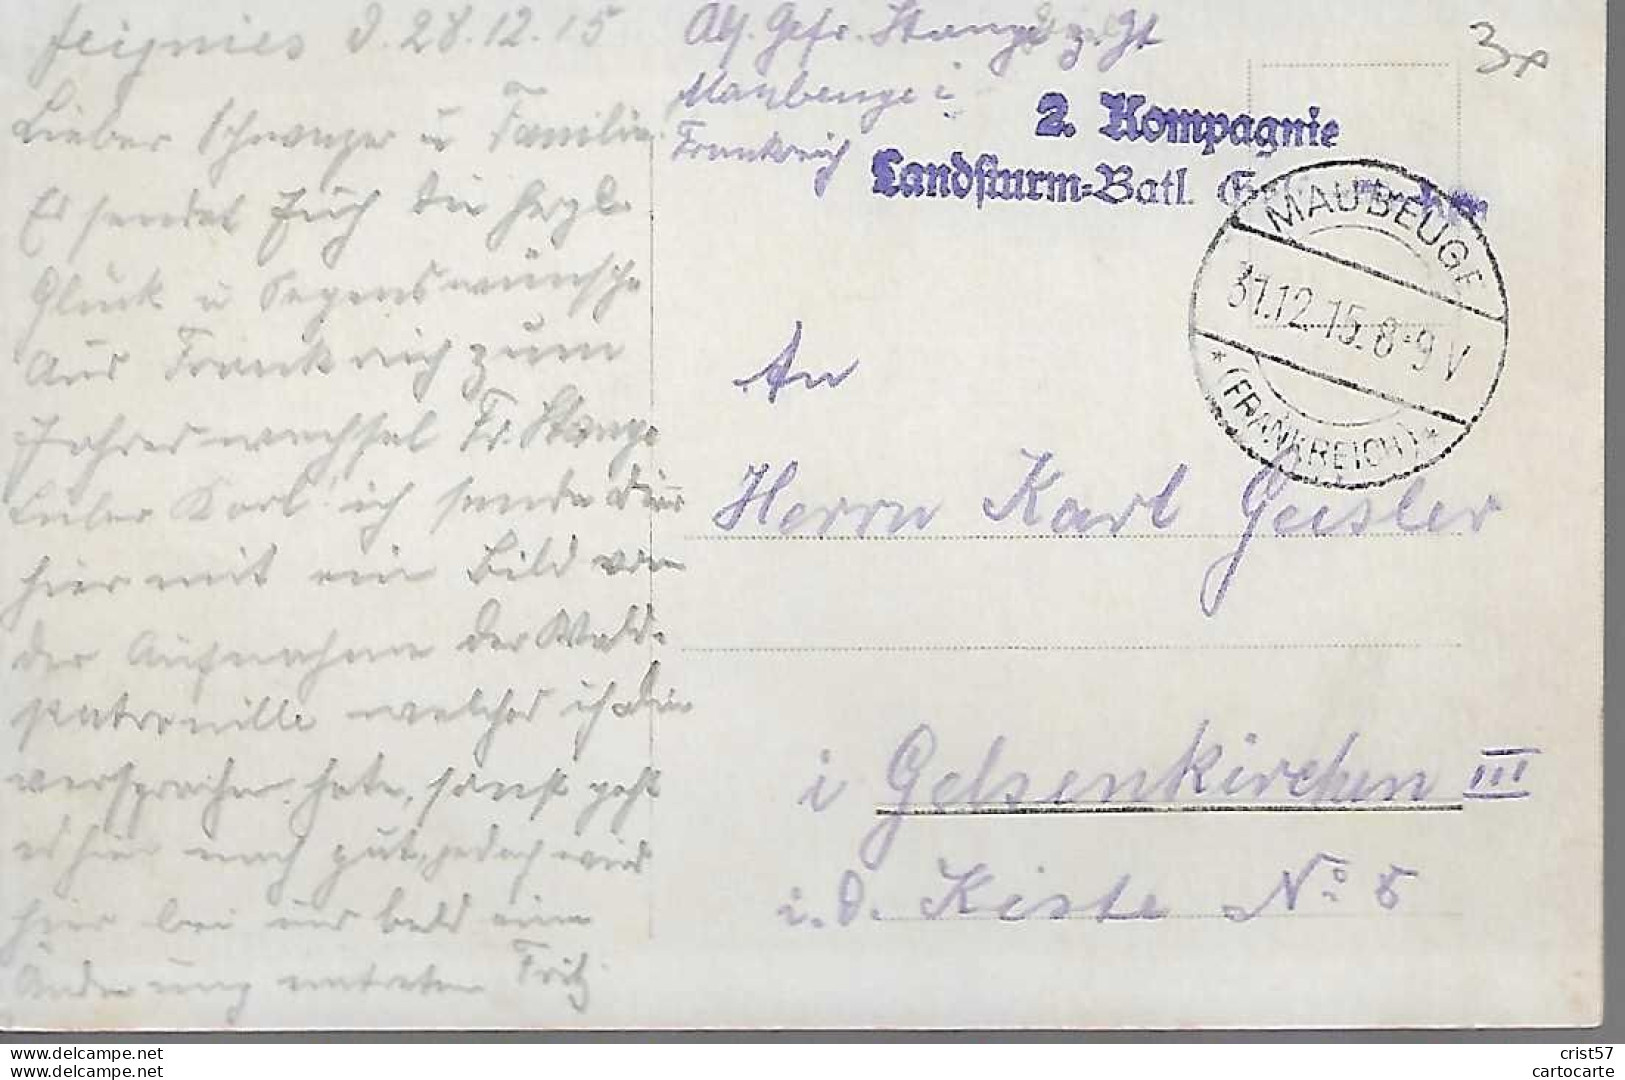 Feignies d. 28.12.15
Lieber Schwager u Familie
Es sendet Euch die herzl.
Glück u Segenswünsche
Aus Frankreich zum
Jahreswechsel Fr. Stange
Lieber Karl! ich sende Dir
hier mit ein Bild von
der Aufnahme der Wald-
patrouille welches ich Dir
versprochen hate, sonst geht
es hier noch gut, jedoch wird
hier bei uns bald eine
Änderung eintreten Fritz
Abs. Gefr. Stange z. Zt
Maubeuge i
Frankreich
3x
2. Kompagnie
Landsturm-Batl.
MAUBEUGE
31.12.15.8-9V
* (FRANKREICH) *
An
Herrn Karl Geisler
i Gelsenkirchen III
i. d. Kiste No 5
www.delcampe.net
www.delcampe.net
crist57
cartocarte